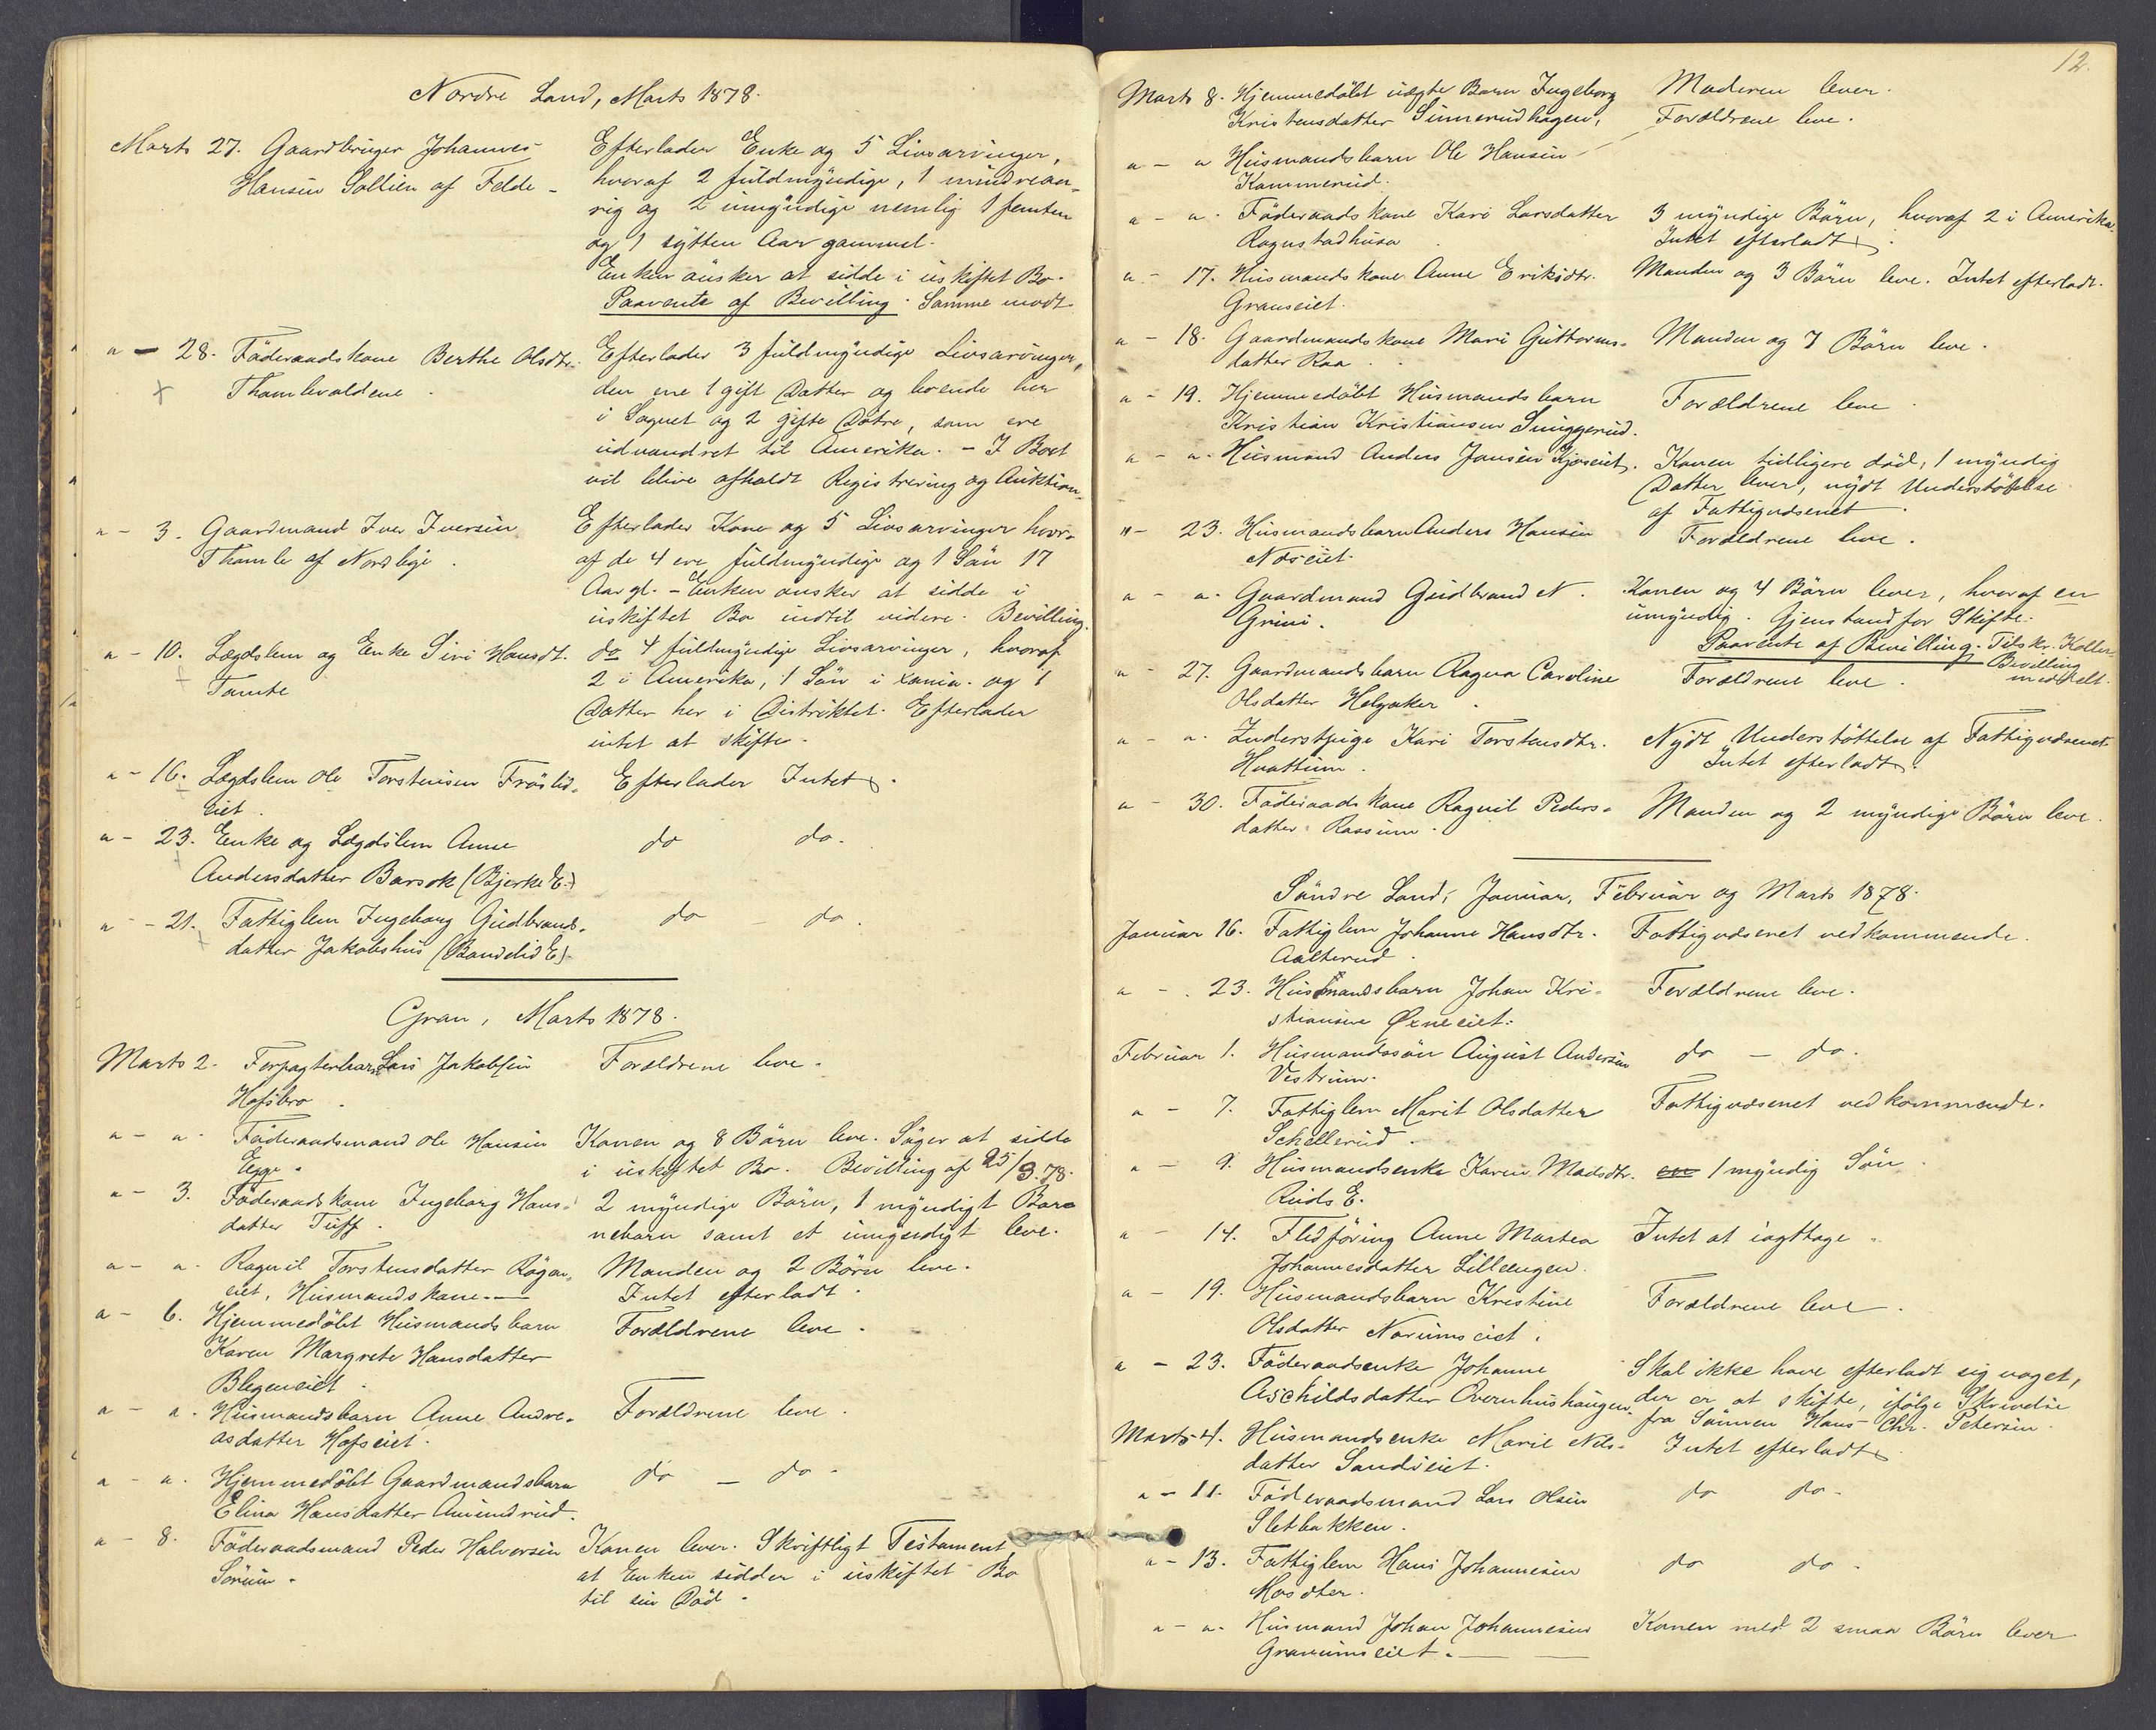 Nordre Land, Marts 1878.
Marts 27. Gaardbruger Johannes Efterlader Enke og 5 Livsarvinger,
Hansen Sollien af Felde - hvoraf 2 fuldmyndige, 1 mindreaa-
rig og 2 umyndige nemlig 1 femten
og 1 sytten Aar gammel.
Enken önsker at sidde i uskiftet Bo.
Paavente af Bevilling. Samme modt.
" - 28. Föderaadskone Berthe Olsdtr. Efterlader 3 fuldmyndige Livsarvinger,
Thomlevoldene. den ene 1 gift Datter og boende her
i Sognet og 2 gifte Dötre, som ere
udvandret til Amerika. - I Boet
vil blive afholdt Registrering og Auktion.
" - 3. Gaardmand Iver Iversen Efterlader Kone og 5 Livsarvinger hvor-
Thomle af Nordlige. af de 4 ere fuldmyndige og 1 Sön 17
Aar gl. - Enken önsker at sidde i
uskiftet Bo indtil videre. Bevilling.
" - 10. Lægdslem og Enke Siri Hansdt. do 4 fuldmyndige Livsarvinger, hvoraf
Tomte 2 i Amerika, 1 Sön i Xania. og 1
Datter her i Distriktet. Efterlader
intet at skifte.
" - 16. Lægdslem Ole Torstensen Fröslid- Efterlader Intet.
eiet.
" - 23. Enke og Lægdslem Anne do do.
Andersdatter Barsok (Bjerke E.)
" - 21. Fattiglem Ingeborg Gudbrands- do - do.
datter Jakobshus (Baudelid E).
Gran, Marts 1878.
Marts 2. Forpagterbarn Lars Jakobsen Forældrene leve.
Hofsbro.
" - ". Föderaadsmand Ole Hansen Konen og 8 Börn leve. Söger at sidde
Egge. i uskiftet Bo. Bevilling af 25/3.78.
" - 3. Föderaadskone Ingeborg Hans- 2 myndige Börn, 1 myndigt Bar-
datter Tuff. nebarn samt et umyndigt leve.
" - ". Ragnil Torstensdatter Rögne- Manden og 2 Börn leve.
eiet, Husmandskone. Intet efterladt.
" - 6. Hjemmedöbt Husmandsbarn Forældrene leve.
Karen Margrete Hansdatter
Blegeneiet.
" - ". Husmandsbarn Anne Andre- Forældrene leve.
asdatter Hofseiet.
" - ". Hjemmedöbt Gaardmandsbarn do - do.
Elina Hansdatter Amundrud.
" - 8. Föderaadsmand Peder Halvorsen Konen lever. Skriftligt Testament
Sörum. at Enken sidder i uskiftet Bo
til sin Död.
12.
Marts 8. Hjemmedöbt uægte Barn Ingeborg Moderen lever.
Kristensdatter Sinnerudhagen. Forældrene leve.
" - " Husmandsbarn Ole Hansen
Kammerud.
" - ". Föderaadskone Kari Larsdatter 3 myndige Börn, hvoraf 2 i Amerika.
Rognstadhusa Intet efterladt.
" - 17. Husmandskone Anne Eriksdtr. Manden og 3 Börn leve. Intet efterladt.
Granseiet.
" - 18. Gaardmandskone Mari Guttorms- Manden og 7 Börn leve.
datter Raa.
" - 19. Hjemmedöbt Husmandsbarn Forældrene leve.
Kristian Kristiansen Smiggerud.
" - ". Husmand Anders Jansen Kjoseiet. Konen tidligere död, 1 myndig
Datter lever, nydt Understöttelse
af Fattigvæsenet.
" - 23. Husmandsbarn Anders Hansen Forældrene leve.
Næseiet.
" - ". Gaardmand Gudbrand N. Konen og 4 Börn lever, hvoraf en
Grini. umyndig. Gjenstand for Skifte.
Paavente af Bevilling. Tilskr. Koller.
Bevilling meddelt.
" - 27. Gaardmandsbarn Ragna Caroline Forældrene leve.
Olsdatter Helgaker.
" - ". Inderstpige Kari Torstensdtr. Nydt Understöttelse af Fattigvæsenet.
Hvattum. Intet efterladt.
" - 30. Föderaadskone Ragnil Peders- Manden og 2 myndige Börn leve.
datter Rossum.
Söndre Land, Januar, Februar og Marts 1878.
Januar 16. Fattiglem Johanne Hansdtr. Fattigvæsenet vedkommende.
Aalterud.
" - 23. Husmandsbarn Johan Kri- Forældrene leve.
stiansen Øxneeiet.
Februar 1. Husmandssön August Andersen do - do.
Vestrum.
" - 7. Fattiglem Marit Olsdatter Fattigvæsenet vedkommende.
Schellerud.
" - 9. Husmandsenke Karen Madsdtr. en 1 myndig Sön.
Ruds E.
" - 14. Flidföring Anne Martea Intet at iagttage.
Johannesdatter Lilleengen.
" - 19. Husmandsbarn Kristine Forældrene leve.
Olsdatter Norumseiet.
" - 23. Föderaadsenke Johanne Skal ikke have efterladt sig noget,
Aschildsdatter Overnhushaugen. der er at skifte, ifölge Skrivelse
fra Sönnen Hans Chr. Petersen.
Marts 4. Husmandsenke Marie Nils- Intet efterladt.
datter Sandseiet.
" - 11. Föderaadsmand Lars Olsen do do.
Sletbakken.
" - 13. Fattiglem Hans Johannesen do do.
Mosdter.
" - ". Husmand Johan Johannesen Konen med 2 smaa Börn lever
Granumseiet.